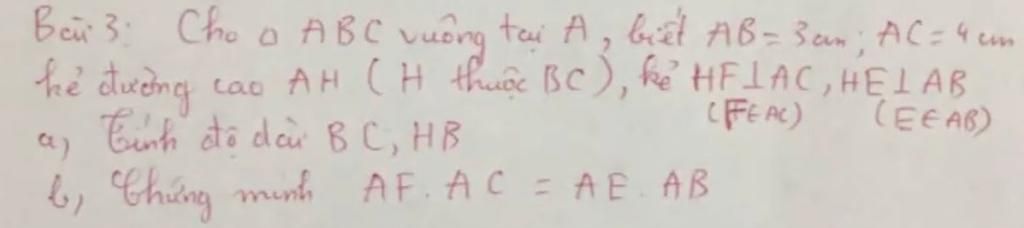 Bài 3: Cho △ ABC vuông tại A, biết AB = 3cm; AC = 4cm
kẻ đường cao AH (H thuộc BC), kẻ HF⊥AC, HE⊥AB
(F∈AC) (E∈AB)
a, Tính độ dài BC, HB
b, Chứng minh AF. AC = AE. AB